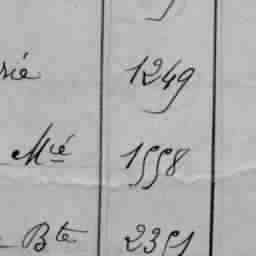 rié 1249
Mié 1558
Bte 2351